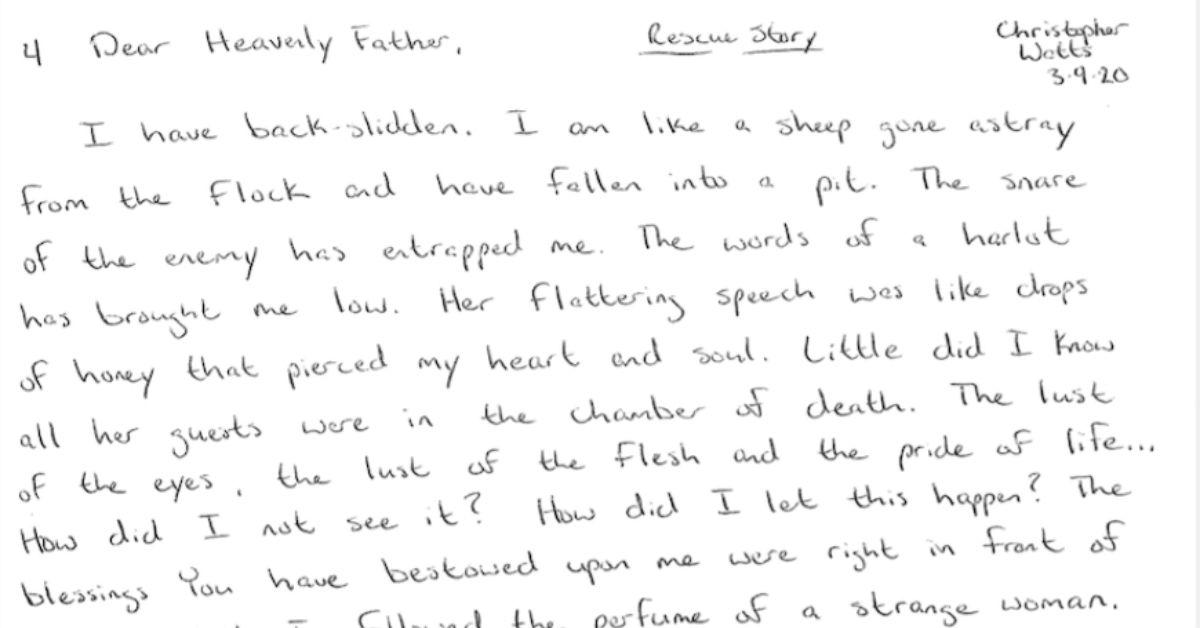 4 Dear Heavenly Father, Rescue Story Christopher
Watts
3.9.20
I have back-slidden. I am like a sheep gone astray
from the flock and have fallen into a pit. The snare
of the enemy has entrapped me. The words of a harlot
has brought me low. Her flattering speech was like drops
of honey that pierced my heart and soul. Little did I know
all her guests were in the chamber of death. The lust
of the eyes, the lust of the flesh and the pride of life...
How did I not see it? How did I let this happen? The
blessings You have bestowed upon me were right in front of
I followed the perfume of a strange woman.